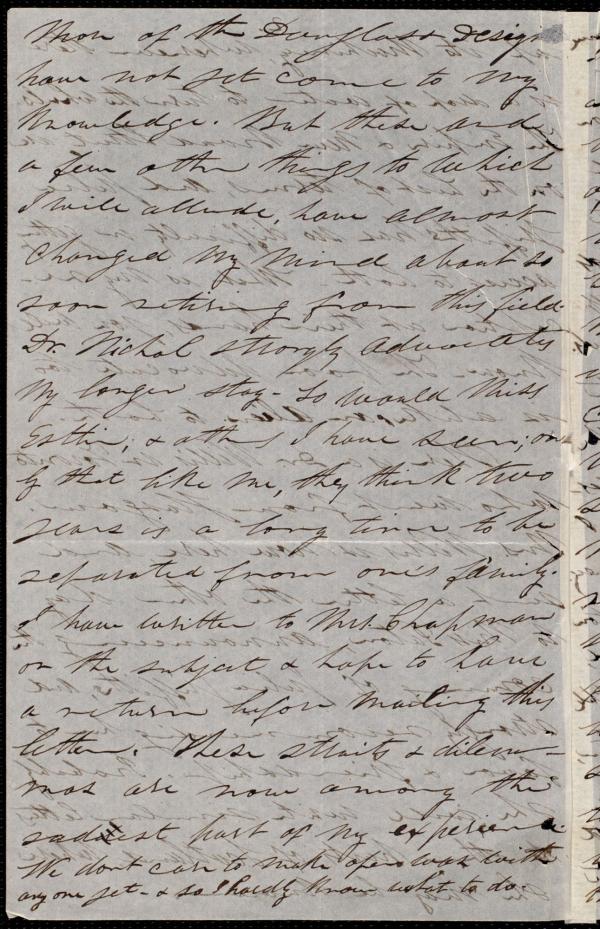 More of the Douglass design
have not yet come to my
knowledge. But these and
a few other things to which
I will allude, have almost
changed my mind about so
soon retiring from this field.
Dr. Nichol strongly advocates
my longer stay - So would Miss
Estlin, & others I have seen; only
that like me, they think two
years is a long time to be
separated from one's family.
I have written to Mrs. Chapman
on the subject & hope to have
a return before mailing this
letter. - These straits & dilem-
mas are now among the
saddest part of my experience.
We dont care to make open war with
any one yet - & so I hardly know what to do.